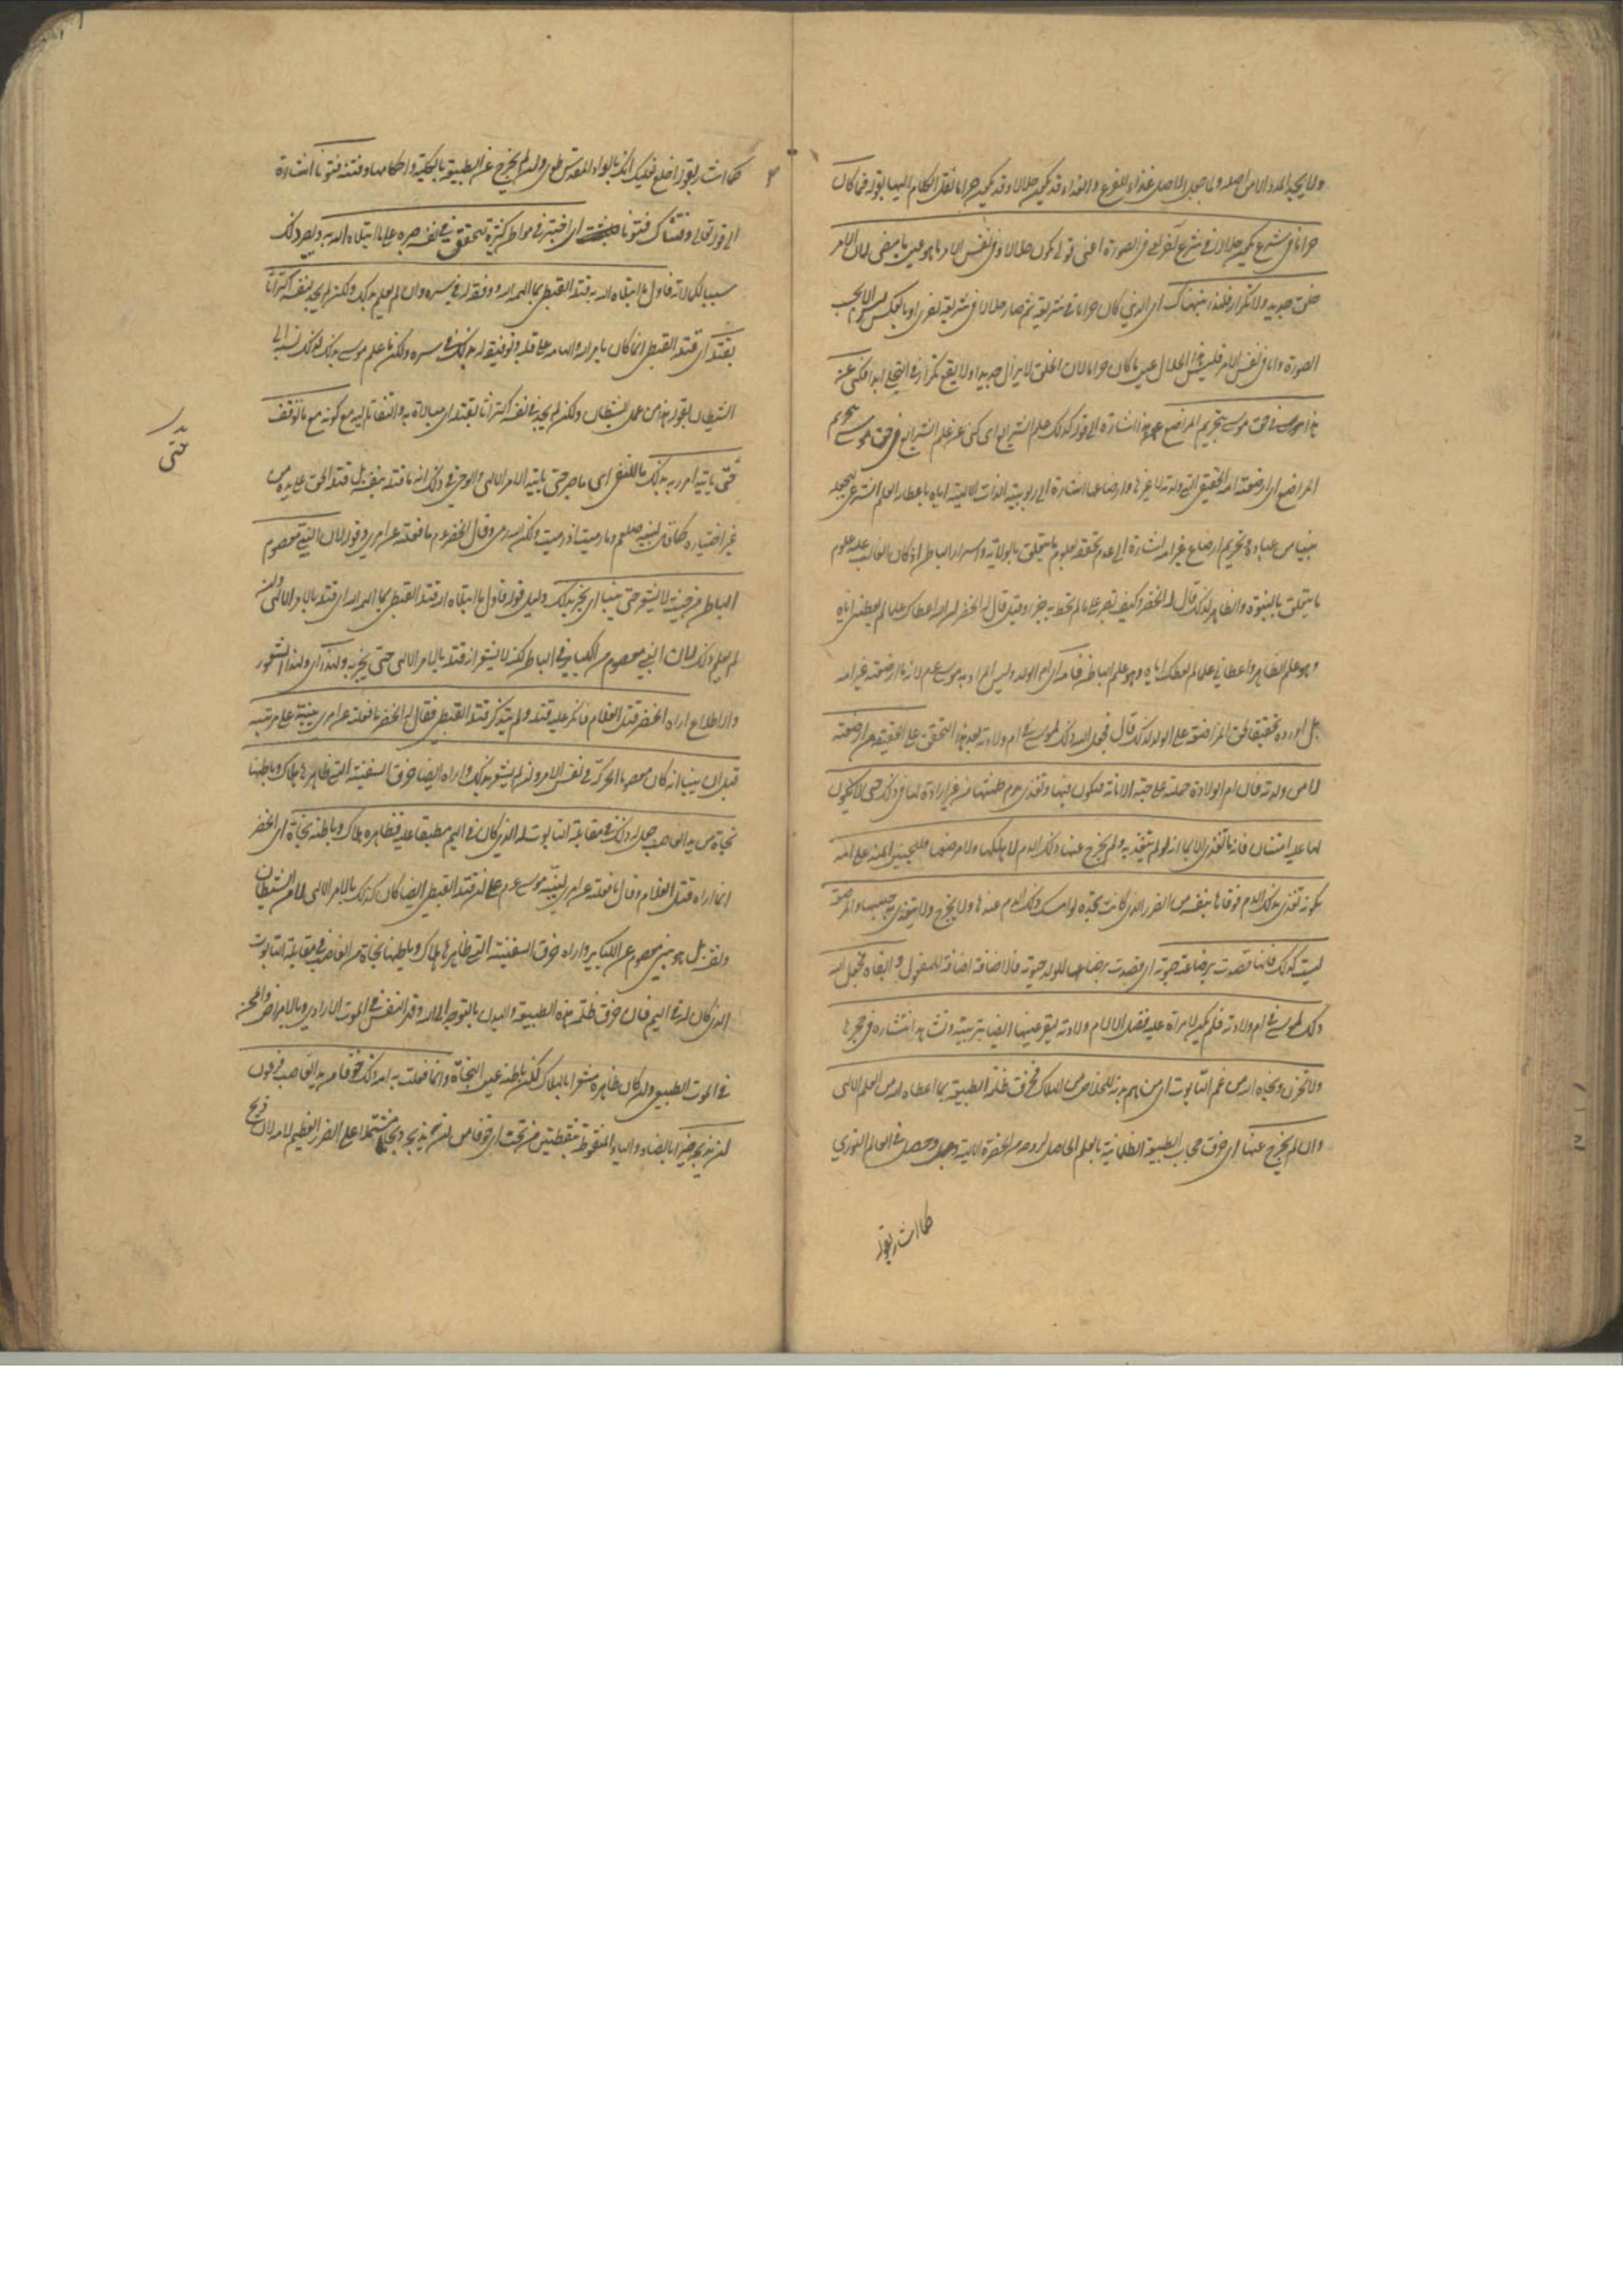 ولا يجيء المدد الا من اصله ولما جعل الاصل غذاء للفرع والغذاء قد يكون حلالا وقد يكون حراما نقل الكلام اليها بقوله فما كان
حراما في شرع يكون حلالا في شرع آخر يعني في الصورة اعني قولي يكون حلالا وفي نفس الامر ما هو عين ما مضى لان الامر
خلق جديد ولا تكرار فلهذا نبهناك اي الذي كان حراما في شريعة ثم صار حلالا في شريعة اخرى او بالعكس ليس الا بحسب
الصورة واما في نفس الامر فليس هذا الحلال عين ما كان حراما لان الخلق لا يزال جديدا ولا يقع تكرار في التجلي ابدا فكنى عن
هذا في حق موسى بتحريم المراضع هذا اشارة الى قوله كذلك علم الشرايع اي كنى عن علم الشرايع في حق موسى بتحريم
المراضع اي ارضعته امه الحقيقي التي ولدته لا غيرها وارضاعها اشارة الى ربوبية الذات الالهية اياه باعطاء العلم الشرعي بجعله
نبيا من عباده وتحريم ارضاع غير امه اشارة الى عدم تحققه بعلوم ما يتعلق بالولاية واسرار الباطن اذ كان الغالب عليه علوم
ما يتعلق بالنبوة والظاهر لذلك قال له الخضر وكيف تصبر على ما لم تحط به خبرا وقيل قال له الخضر ان الله اعطاك علما لم يعطني اياه
وهو علم الظاهر واعطاني علما لم يعطك اياه وهو علم الباطن فامه اي ام الولد وليس المراد به موسى عم لانه ما ارضعته غير امه
بل اورده تحقيقا لحق المراضعة على الولد لذلك قال فجعل الله ذلك لموسى في ام ولادته بعد هذا التحقق على الحقيقة من ارضعته
لا من ولدته فان ام الولادة حملته على جهة الامانة فتكون فيها وتغذى بدم طمثها من غير ارادة لها في ذلك حتى لا يكون
لها عليه امتنان فانه ما تغذى الا بما انه لو لم يتغذ به ولم يخرج عنها ذلك الدم لاهلكها ولامرضها فللجنين المنة على امه
بكونه تغذى بذلك الدم فوقاها بنفسه من الضرر الذي كانت تجده لو امسك ذلك الدم عندها ولا يخرج ولا يتغذى به جنينها والمرضعة
ليست كذلك فانها قصدت برضاعته حيوته اي قصدت برضاعها للولد حيوته فالاضافة اضافة للمفعول وابقاه فجعل الله
ذلك لموسى في ام ولادته فلم يكن لامراة عليه فضل الا لام ولادته لتقر عينها ايضا بتربيته وتشاهد انتشاءه في حجرها
ولا تحزن ونجاه الله من غم التابوت اي من الهم به للخلاص من الهلاك فخرق ظلمة الطبيعة بما اعطاه الله من العلم الالهي
وان لم يخرج عنها اي خرق حجاب الطبيعة الظلمانية بالعلم الحاصل لروحه من الحضرة الالهية وحصل في العالم النوري
كما اشار بقوله
كما اشار بقوله اخلع نعليك انك بالواد المقدس طوى وان لم يخرج عن الطبيعة بالكلية واحكامها وفتنه فتونا اشارة
الى قوله تعالى وفتناك فتونا اي اختبره في مواطن كثيرة ليتحقق في نفسه صبره على ما ابتلاه الله به ويصير ذلك
سببا لكمالاته فاول ما ابتلاه الله به قتله القبطي بما الهمه الله ووفقه له في سره وان لم يعلم بذلك ولكن لم يجد بنفسه اكتراثا
بقتله اي قتله القبطي انما كان بامر الله والهامه على قلبه وتوفيقه له بذلك في سره ولكن ما علم موسى بذلك لذلك نسب الى
الشيطان بقوله هذا من عمل الشيطان ولكن لم يجد في نفسه اكتراثا بقتله اي مبالاة به والتفاتا اليه مع كونه مع ما توقف
حتى
حتى ياتيه امر ربه بذلك ما للنفي اي ما صبر حتى ياتيه الامر الالهي والوحي في ذلك انه ما قتله بنفسه بل قتله الحق على يده من
غير اختياره كما قال لنبيه صلعم وما رميت اذ رميت ولكن الله رمى وقال الخضر عم ما فعلته عن امري وقوله لان النبي معصوم
الباطن من حيث لا يشعر حتى ينبأ اي يخبر بذلك دليل قوله فاول ما ابتلاه الله قتله القبطي بما الهمه الله اي قتله بالامر الالهي وان
لم يعلم ذلك لان النبي معصوم من الكباير في الباطن لكنه لا يشعر انه قتله بالامر الالهي حتى يخبر به ولهذا اي ولهذا الشعور
والاطلاع اراه الخضر قتل الغلام فانكر عليه قتله ولم يتذكر قتله القبطي فقال له الخضر ما فعلته عن امري ينبهه على مرتبته
قبل ان ينبأ انه كان معصوما الحركة في نفس الامر وان لم يشعر بذلك واراه ايضا خرق السفينة التي ظاهرها هلاك وباطنها
نجاة من يد الغاصب جعل له ذلك في مقابلة التابوت له الذي كان في اليم مطبقا عليه فظاهره هلاك وباطنه نجاة اي الخضر
انما اراه قتل الغلام وقال ما فعلته عن امري لينبه موسى عم على ان قتله القبطي ايضا كان كذلك بالامر الالهي لا من الشيطان
ونفسه بل هو نبي معصوم عن الكباير واراه خرق السفينة التي ظاهرها هلاك وباطنها نجاة من الغاصب في مقابلة التابوت
الذي كان له في اليم فان خرق ظلمة هذه الطبيعة والبدن بالتوجه الى الله وقهر النفس في الموت الارادي وبالامراض والمحن
في الموت الطبيعي وان كان ظاهره مشعرا بالهلاك لكن باطنه عين النجاة وانما فعلت به امه ذلك خوفا من يد الغاصب فرعون
ان يذبحه صبرا بالضاد والياء المنقوطة بنقطتين من تحت اي خوفا من ان يذبحه ذبحا مشتملا على الضرر العظيم لامه لان ذبح